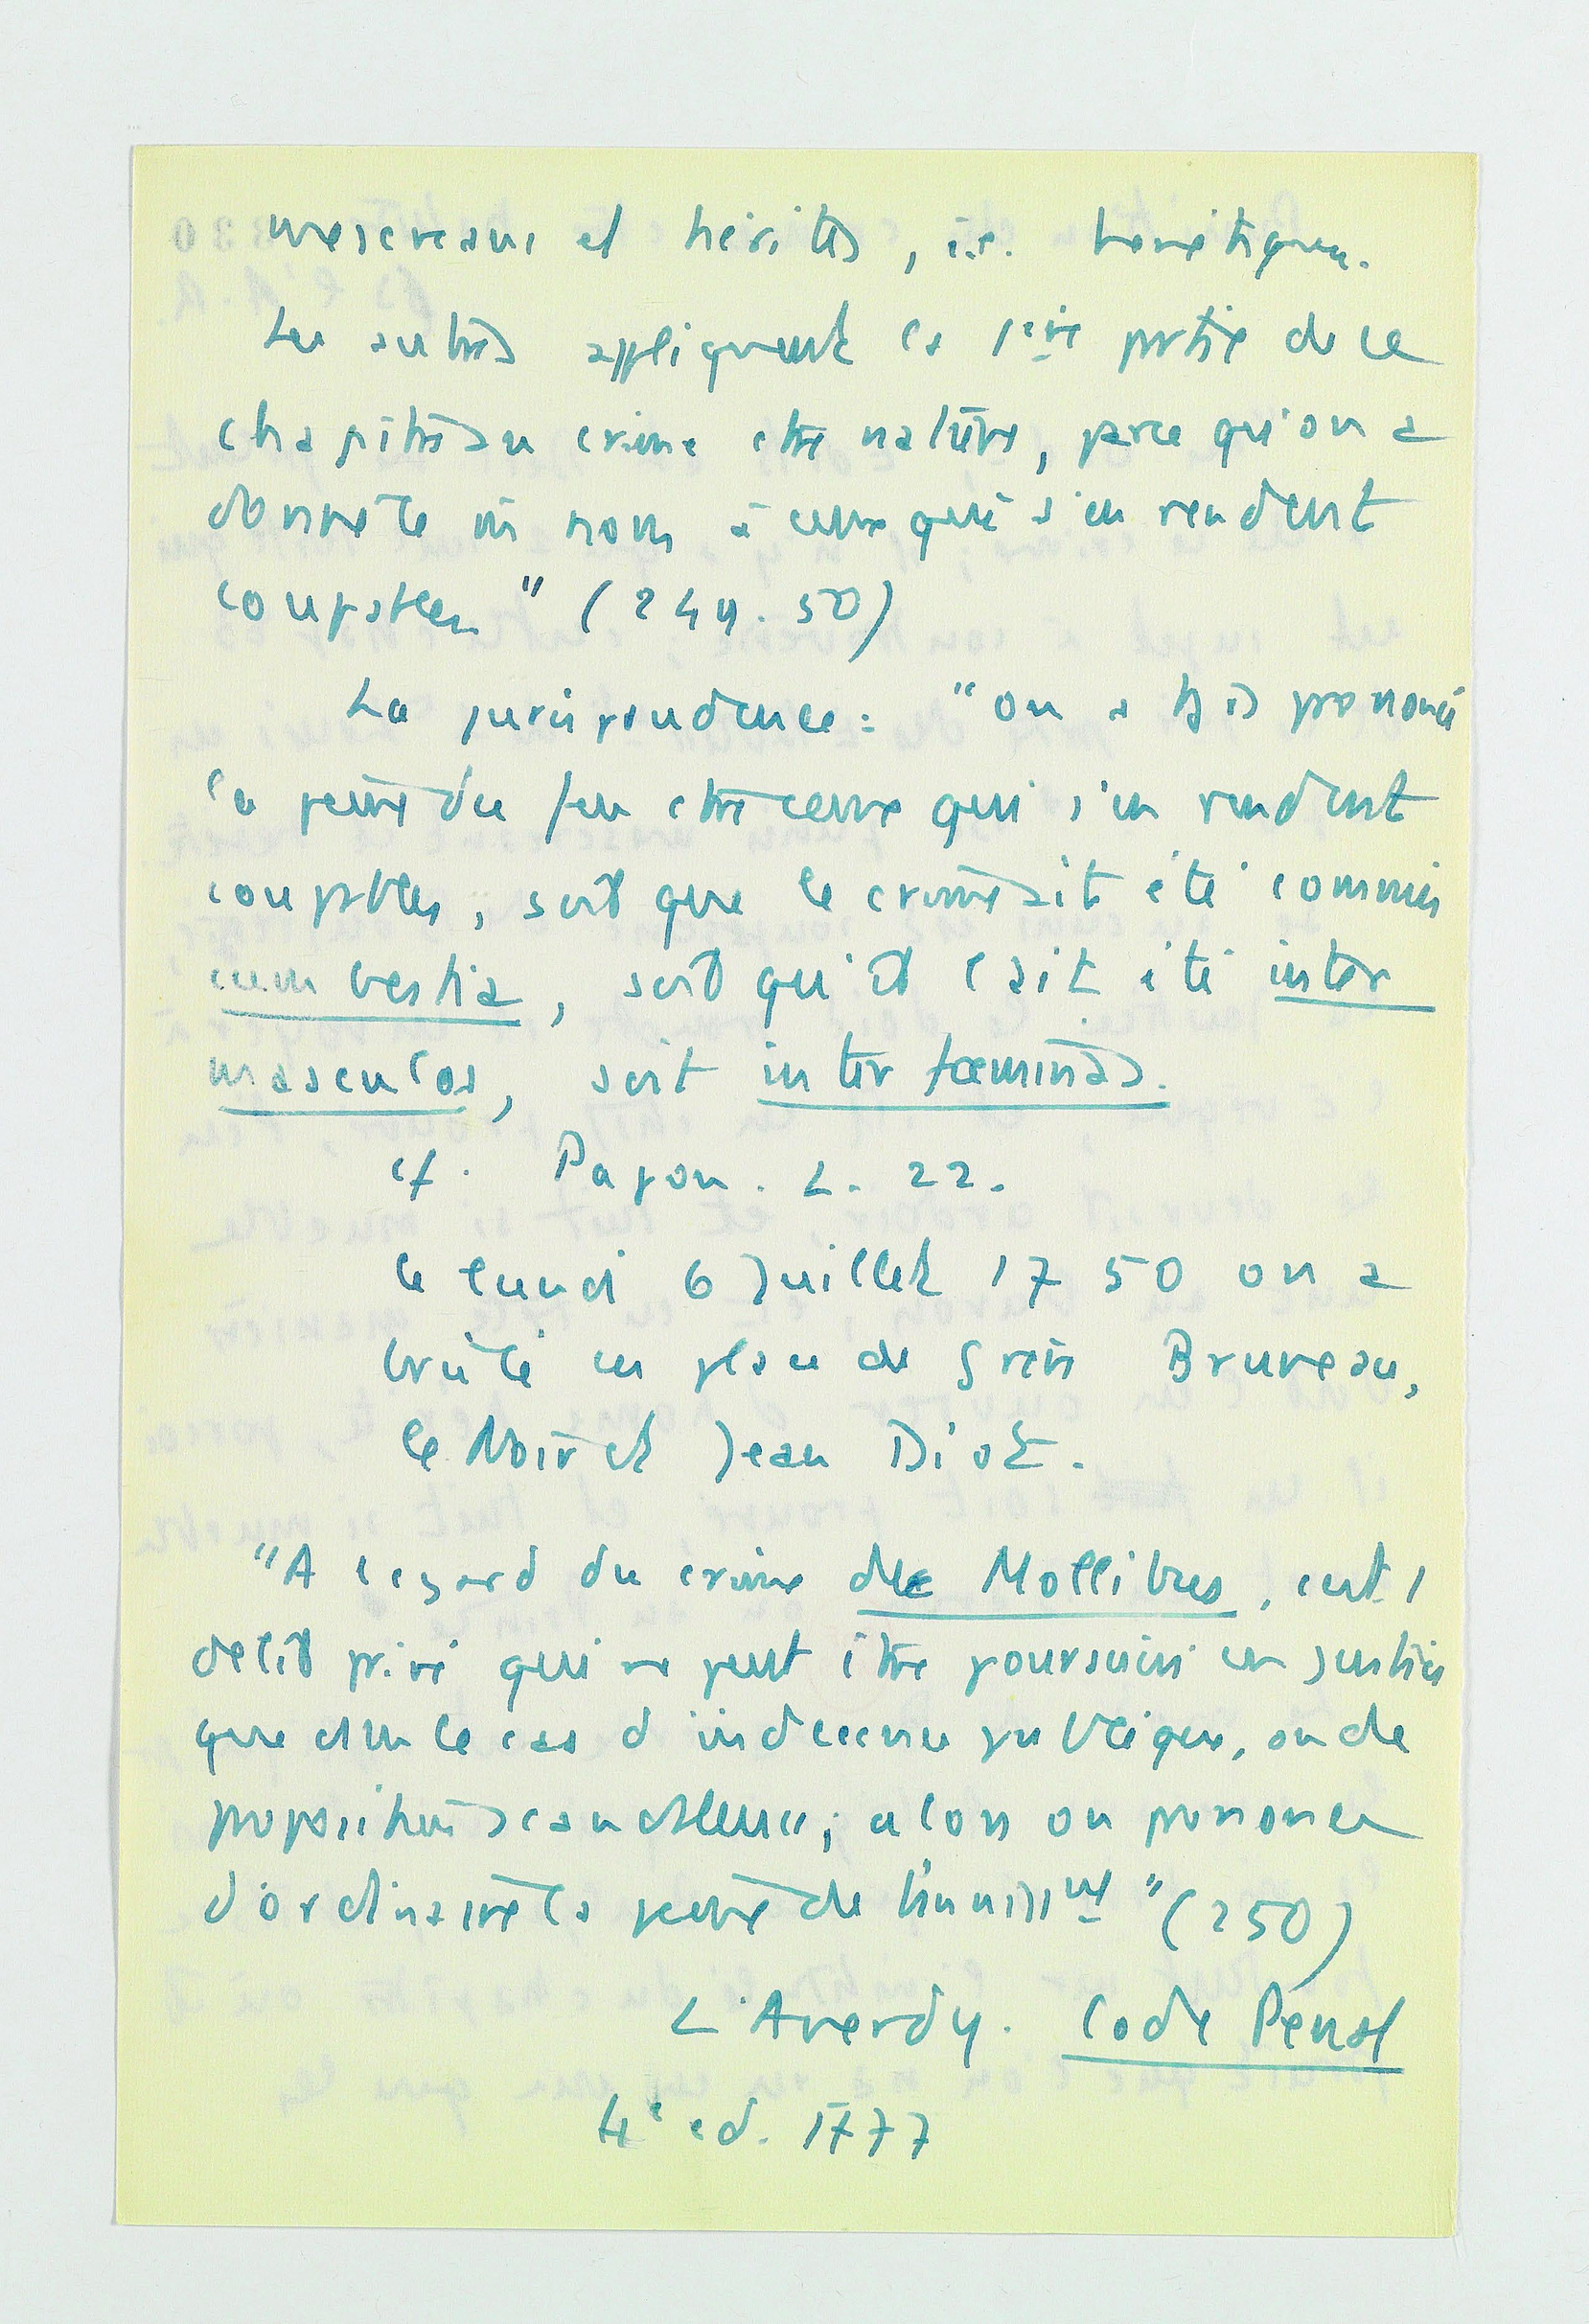 mescreans et hérités, i.e. heretiques.
Les autres appliquent la 1ère partie de ce
chapitre au crime ctre nature, parce qu'on a
donné ce nom à ceux qui s'en rendent
coupables" (249.50)
La jurisprudence : "on a tjs prononcé
la peine du feu ctre ceux qui s'en rendent
coupables, soit que le crime ait été commis
cum bestia, soit qu'il l'ait été inter
masculos, soit inter fœminas.
cf. Papon. L. 22.
le lundi 6 Juillet 1750 on a
brûlé en place de Grève Bruneau,
le Noir et Jean Diot.
"A l'égard du crime de Mollities, c'est 1
délit privé qui ne peut être poursuivi en Justice
que dans le cas d'indécence publique, ou de
propositions scandaleuses; alors on prononce
d'ordinaire la peine de bannisst" (250)
L'Averdy. Code Pénal
4e ed. 1777